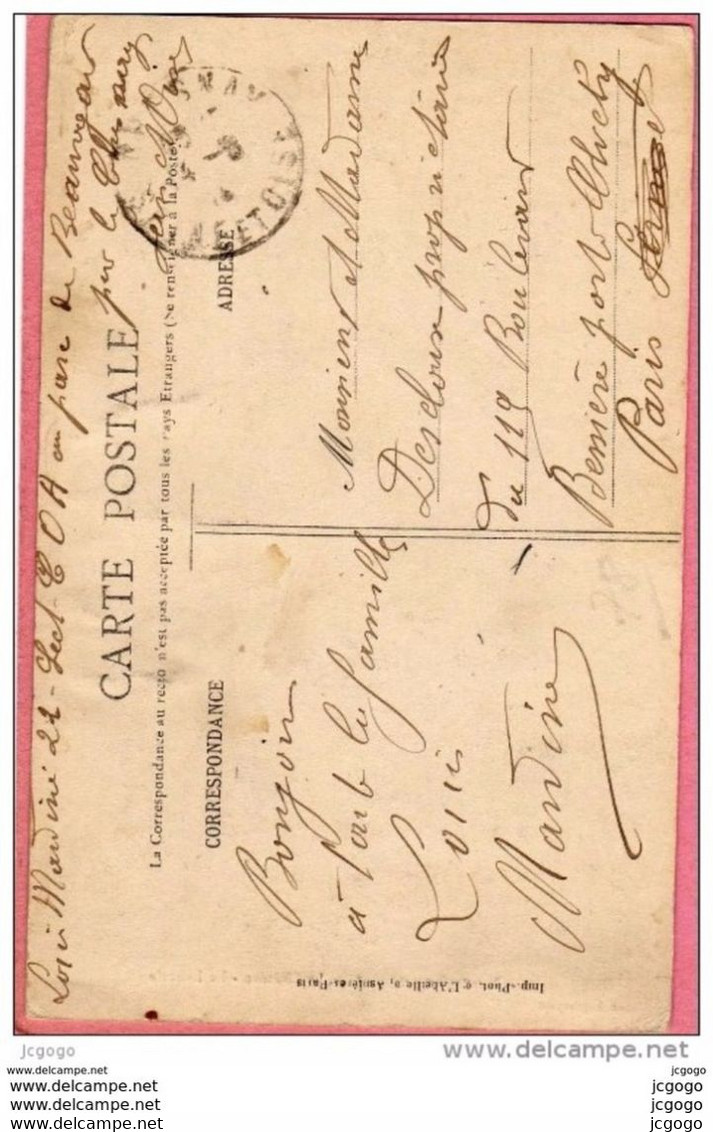 Louis Mardiné 22 - Sect. C O A au parc de Beauvear
par le Chesnay
Seine et Oise
CARTE POSTALE
La Correspondance au recto n'est pas acceptée par tous les Pays Etrangers (Se renseigner à la Poste)
CORRESPONDANCE
ADRESSE
ET OISE
Bonjour
à toute la famille
Louis
Mardiné
Monsieur et Madame
propriétaire
du 119 Boulevard
Paris
Imp.-Phot. « L'Abeille », Asnières-Paris
jcgogo
www.delcampe.net
jcgogo
www.delcampe.net
jcgogo
www.delcampe.net
jcgogo
www.delcampe.net
jcgogo
www.delcampe.net